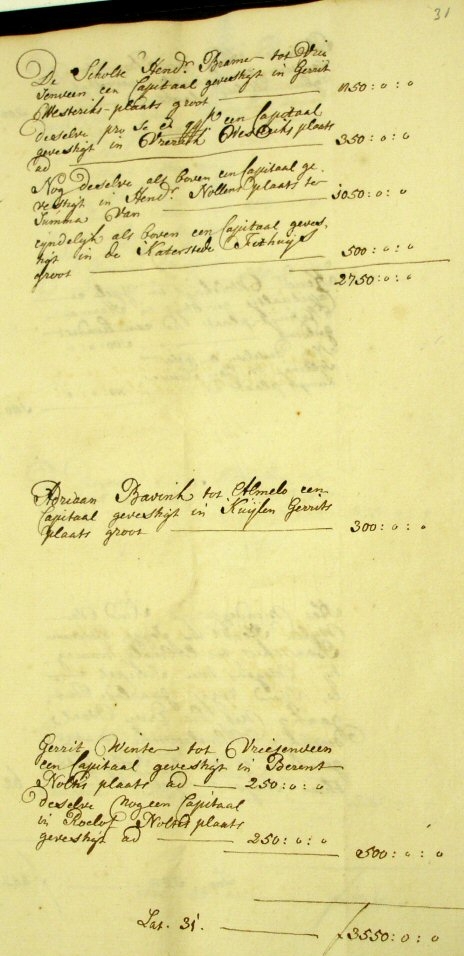 31
De Scholte Hend.r Bramer tot Vrie
senveen een Capitaal gevestigt in Gerrit
Westeriks plaats groot 1150:0:0
deselve pro se et qq een Capitaal
gevestigt in Vrerik Westeriks plaats
ad 350:0:0
Nog deselve als boven een Capitaal ge-
vestigt in Hend.r Nollens plaats ter
Summa van 1050:0:0
eyndelijk als boven een Capitaal geves-
tigt in de Katerstede
groot 500:0:0
2750:0:0
Adriaan Bavink tot Almelo een
Capitaal gevestigt in Kuijlen Gerrits
plaats groot 300:0:0
Gerrit Winter tot Vriesenveen
een Capitaal gevestigt in Berent
Noltis plaats ad 250:0:0
deselve nog een Capitaal
in Roelof Noltis plaats
gevestigt ad 250:0:0
500:0:0
Lat. 31. f 3550:0:0